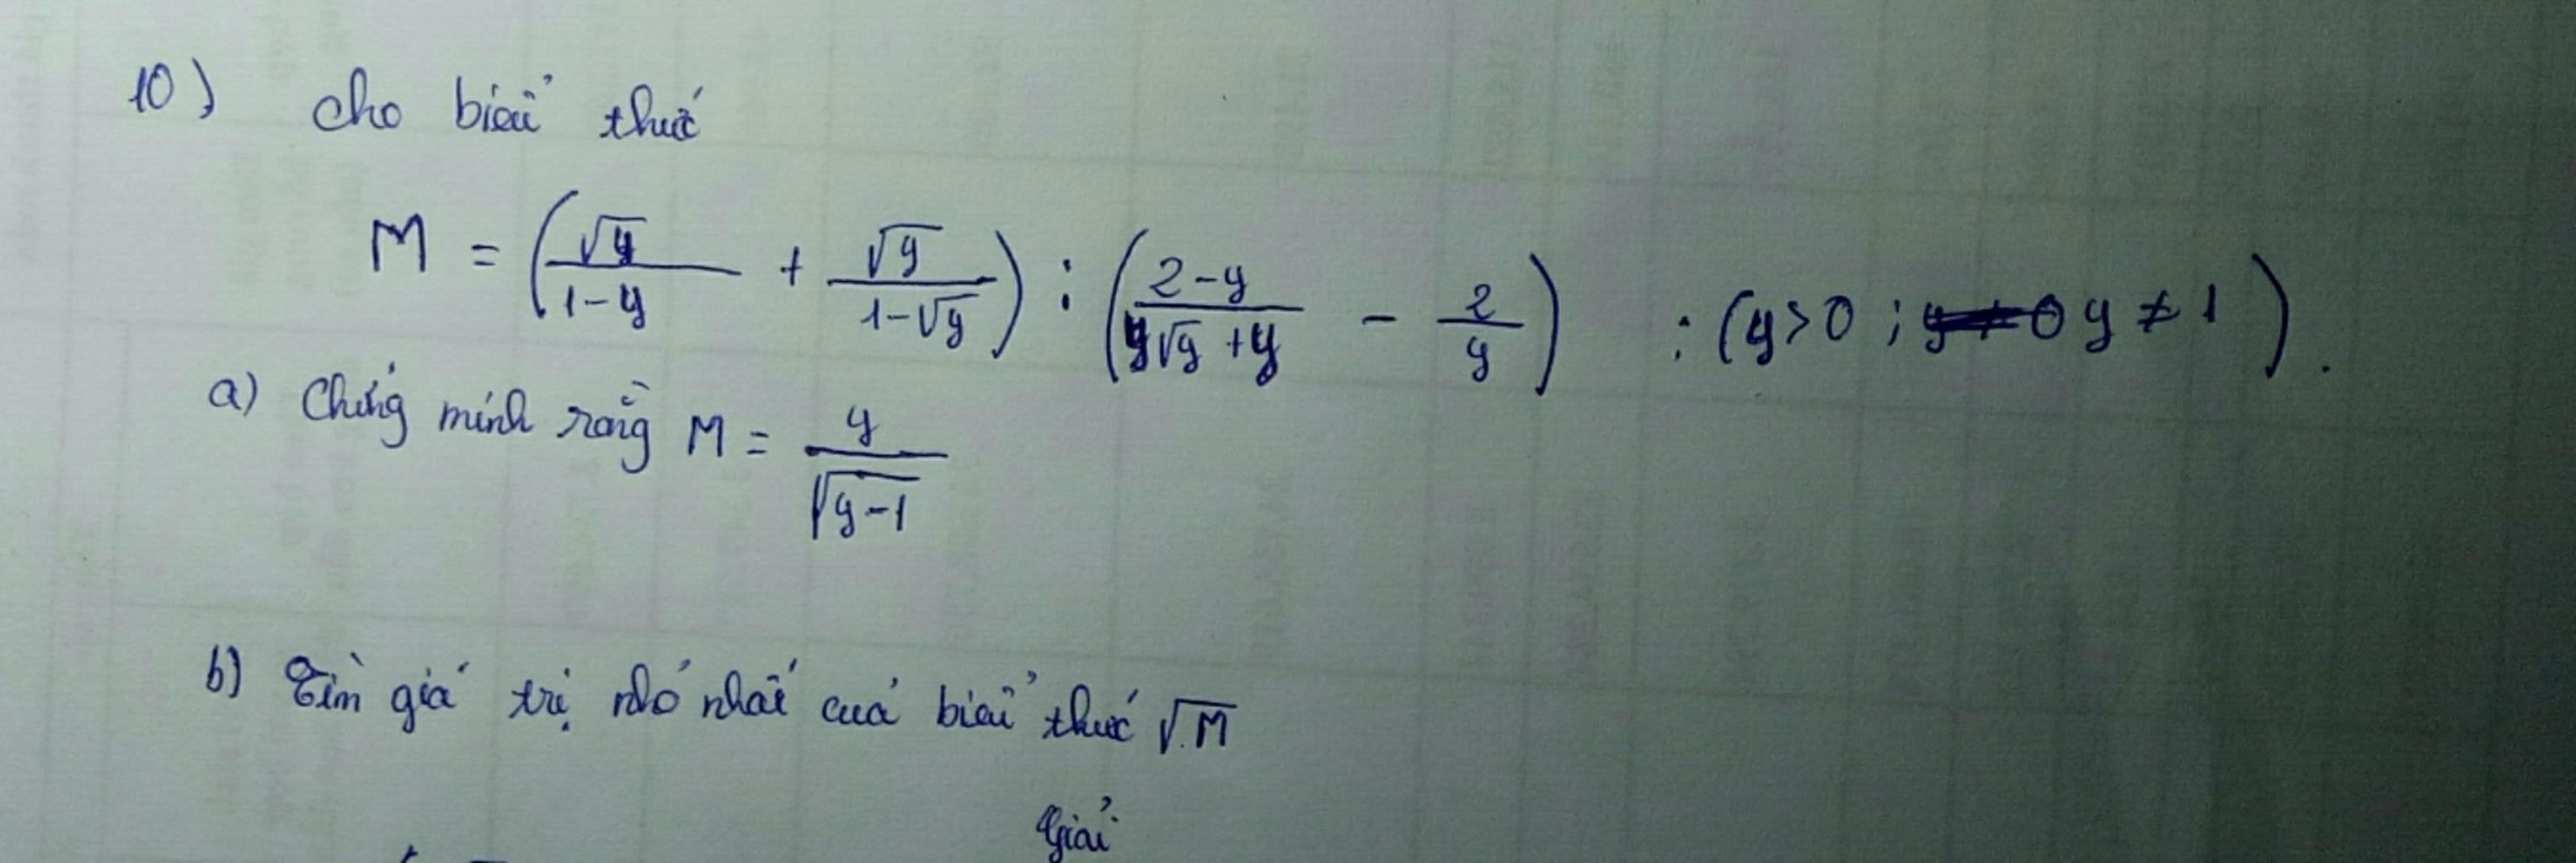 10) cho biểu thức
M = (√y/(1-y) + √y/(1-√y)) : ((2-y)/(y√y+y) - 2/y) : (y>0 ; y≠0 y≠1).
a) Chứng minh rằng M = y/√(y-1)
b) Tìm giá trị nhỏ nhất của biểu thức √M
Giải